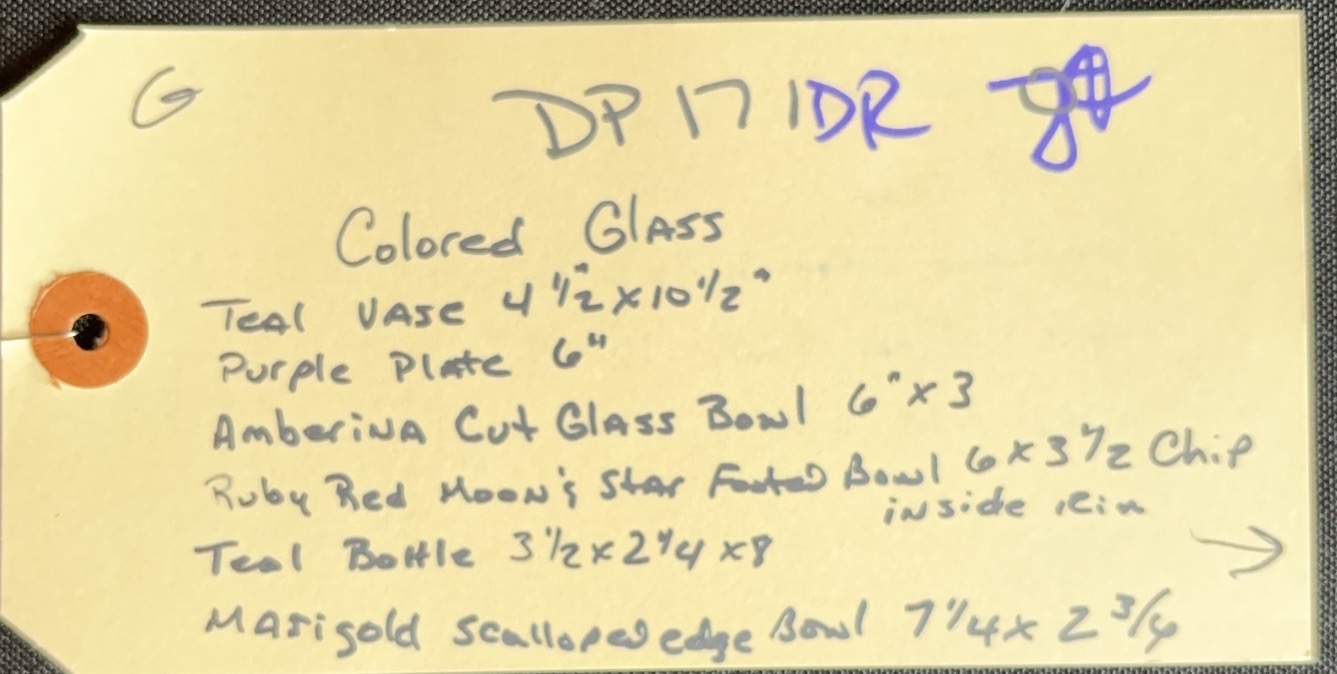 G DP171DR
Colored Glass
Teal Vase 4 1/2" x 10 1/2"
Purple Plate 6"
Amberina Cut Glass Bowl 6" x 3
Ruby Red Moon & Star Footed Bowl 6 x 3 1/2 Chip
inside Rim
Teal Bottle 3 1/2 x 2 1/4 x 8
→
Marigold Scalloped edge Bowl 7 1/4 x 2 3/4